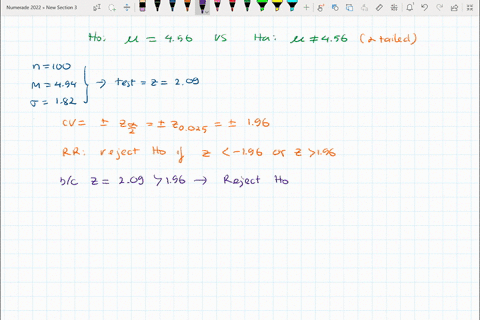 Numerade 2022 > New Section 3
Ho: μ = 4.56 vs Ha: μ ≠ 4.56 (2 tailed)
n=100
M = 4.94
σ = 1.82
→ test = z = 2.09
CV = ± z α/2 = ± z 0.025 = ± 1.96
RR: reject Ho if z < -1.96 or z > 1.96
b/c z = 2.09 > 1.96 → Reject Ho